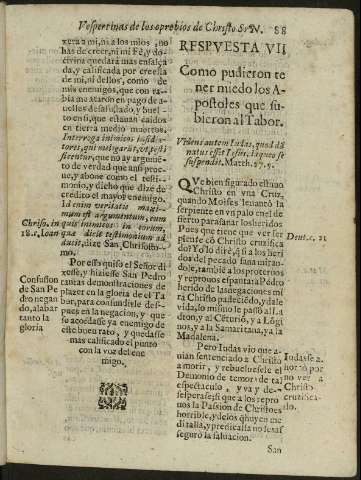 Vespertinas de los oprobios de Christo S.N. 88
xera a mi, ni a los mios, no
has de creer, ni mi Fè, y do-
ctrina quedará mas ensalça
da, y calificada por creella
de mi, ni dellos, como de
mis enemigos, que con ra-
bia me ataron en pago de a-
uelles desatado, y buel-
to en si, que estauan caidos
en tierra medio muertos.
Interroga inimicos insidia-
tores,
que no ay argumē-
to de verdad que assi proce-
ue, y abone como el testi-
monio, y dicho que dize de
credito el mayor enemigo.
Id enim veritatis maxi-
mum fit argumentum, cum
Chriso. in quis inimicos in forum,
18. c. Ioan quæ dicit testimonium ad-
ducit, dize San Chrisosto-
mo.
Por esso quiso el Señor di
xesse, y hiziesse San Pedro
Confusion
de San Pe
dro negan
do, alabar
tanto la
gloria
tantas demonstraciones de
plazer en la gloria del Ta
bor, para confundirle des-
pues en la negacion, y que
se acordasse ya enemigo de
este buen rato, y quedasse
mas calificado el punto
con la voz del ene
migo.
RESPVESTA VII
Como pudieron te
ner miedo los A-
postoles que su-
bieron al Tabor.
Videns autem Iudas, quod dā
natus esset Iesus, laqueo se
suspendit. Matth. 27. 5.
QVe bien figurado estuuo
Christo en vna Cruz,
quando Moises leuantó la
serpiente en vn palo en el de
sierto para sanar los heridos
Pues que tiene que ver la
serpiente cō Christo crucifica
do? Yo lo diré, q̃ si a los heri
dos del pecado sana mirandole,
Deut. c. 21
tambiē a los proteruos
y reprouos espanta a Pedro
herido de las negaciones mi
ra Christo padeciēdo, y da le
vida, lo mismo le passó al La
dron, y al Céturiō, y a Lōgi
nos, y a la Samaritana, y a la
Madalena.
Pero Iudas vio que a-
uian sentenciado a Christo
a morir, y rebueluesele el
Demonio de temor de tal
espectaculo, y va y de-
sesperase; si que a los repro
nos la Passion de Christo es
horrible, y de los q̃ huyen me
di talla, y predicalla no les as
seguró la saluacion.
Iudas se a-
horcó por
no ver a
Christo
crucifica-
do.
San